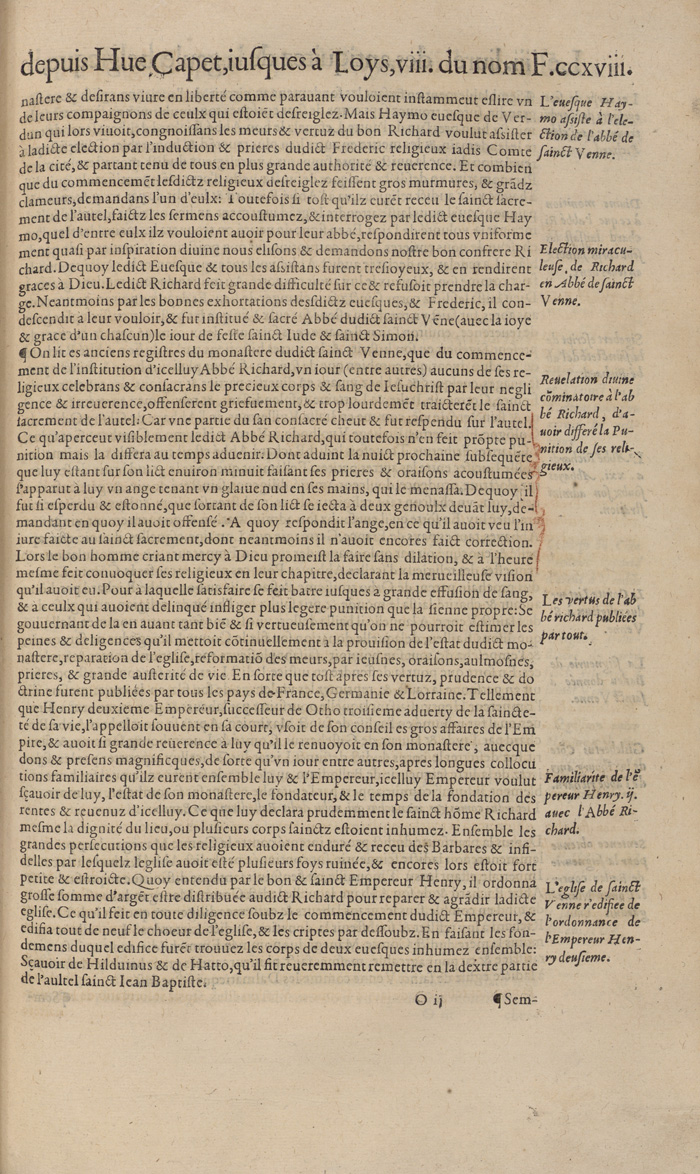 depuis Hue Capet,iuſques à Loys,viii. du nom F.ccxviii.
naſtere & deſirans viure en liberté comme parauant vouloient inſtamment eſlire vn
de leurs compaignons de ceulx qui eſtoiẽt deſreiglez.Mais Haymo eueſque de Ver-
dun qui lors viuoit,congnoiſſans les meurs & vertuz du bon Richard voulut aſsiſter
à ladicte election par l'induction & prieres dudict Frederic religieux iadis Comte
de la cité,& partant tenu de tous en plus grande authorité & reuerence. Et combien
que du commencemẽt leſdictz religieux deſreiglez feiſſent gros murmures, & grãdz
clameurs,demandans l'un d'eulx: Toutefois ſi toſt qu'ilz eurẽt receu le ſainct ſacre-
ment de l'autel,faictz les ſermens accouſtumez,& interrogez par ledict eueſque Hay
mo,quel d'entre eulx ilz vouloient auoir pour leur abbé,reſpondirent tous vniforme
ment quaſi par inſpiration diuine nous eliſons & demandons noſtre bon confrere Ri
chard.Dequoy ledict Eueſque & tous les aſsiſtans furent treſioyeux, & en rendirent
graces à Dieu.Ledict Richard feit grande difficulté ſur ce & refuſoit prendre la char-
ge.Neantmoins par les bonnes exhortations deſdictz eueſques,& Frederic, il con-
deſcendit a leur vouloir,& fut inſtitué & ſacré Abbé dudict ſainct Vẽne(auec la ioye
& grace d'un chaſcun)le iour de feſte ſainct Iude & ſainct Simon.
¶ On lit es anciens regiſtres du monaſtere dudict ſainct Venne,que du commence-
ment de l'inſtitution d'icelluy Abbé Richard,vn iour (entre autres) aucuns de ſes re-
ligieux celebrans & conſacrans le precieux corps & ſang de Ieſuchriſt par leur negli
gence & irreuerence,offenſerent griefuement,& trop lourdemẽt traicterẽt le ſainct
ſacrement de l'autel: Car vne partie du ſan conſacré cheut & fut reſpendu ſur l'autel.
Ce qu'aperceut viſiblement ledict Abbé Richard,qui toutefois n'en feit prõpte pu-
nition mais la differa au temps aduenir.Dont aduint la nuict prochaine ſubſequẽte
que luy eſtant ſur ſon lict enuiron minuit faiſant ſes prieres & oraiſons acouſtumées
s'apparut à luy vn ange tenant vn glaiue nud en ſes mains, qui le menaſſa.Dequoy il
fut ſi eſperdu & eſtonné,que ſortant de ſon lict ſe iecta à deux genoulx deuãt luy,de-
mandant en quoy il auoit offenſé . A quoy reſpondit l'ange,en ce qu'il auoit veu l'in
iure faicte au ſainct ſacrement,dont neantmoins il n'auoit encores faict correction.
Lors le bon homme criant mercy à Dieu promeiſt la faire ſans dilation, & à l'heure
meſme feit conuoquer ſes religieux en leur chapitre,declarant la merueilleuſe viſion
qu'il auoit eu.Pour à laquelle ſatisfaire ſe feit batre iuſques à grande effuſion de ſang,
& a ceulx qui auoient delinqué infliger plus legere punition que la ſienne propre:Se
gouuernant de la en auant tant biẽ & ſi vertueuſement qu'on ne pourroit eſtimer les
peines & deligences qu'il mettoit cõtinuellement à la prouiſion de l'eſtat dudict mo-
naſtere,reparation de l'egliſe,reformatiõ des meurs,par ieuſnes, oraiſons,aulmoſnes,
prieres, & grande auſterité de vie En ſorte que toſt apres ſes vertuz, prudence & do
ctrine furent publiées par tous les pays de France, Germanie & Lorraine.Tellement
que Henry deuxieme Empereur,ſucceſſeur de Otho troiſieme aduerty de la ſaincte-
té de ſa vie,l'appelloit ſouuent en ſa court, vſoit de ſon conſeil es gros affaires de l'Em
pire,& auoit ſi grande reuerence à luy qu'il le renuoyoit en ſon monaſtere , auecque
dons & preſens magnificques,de ſorte qu'vn iour entre autres,apres longues collocu
tions familiaires qu'ilz eurent enſemble luy & l'Empereur,icelluy Empereur voulut
ſçauoir de luy, l'eſtat de ſon monaſtere,le fondateur,& le temps de la fondation des
rentes & reuenuz d'icelluy.Ce que luy declara prudemment le ſainct hõme Richard
meſme la dignité du lieu,ou pluſieurs corps ſainctz eſtoient inhumez. Enſemble les
grandes perſecutions que les religieux auoient enduré & receu des Barbares & infi-
delles par leſquelz l'egliſe auoit eſté pluſieurs foys ruinée,& encores lors eſtoit fort
petite & eſtroicte.Quoy entendu par le bon & ſainct Empereur Henry,il ordonna
groſſe ſomme d'argẽt eſtre diſtribuée audict Richard pour reparer & agrãdir ladicte
egliſe.Ce qu'il feit en toute diligence ſoubz le commencement dudict Empereur,&
edifia tout de neuf le choeur de l'egliſe,& les criptes par deſſoubz.En faiſant les fon-
demens duquel edifice furẽt trouuez les corps de deux eueſques inhumez enſemble:
Sçauoir de Hilduinus & de Hatto,qu'il fit reueremment remettre en la dextre partie
de l'aultel ſainct Iean Baptiſte.
O ij ¶ Sem-
L'eueſque Hay-
mo aſsiſte à l'ele-
ction de l'abbé de
ſainct Venne.
Election miracu-
leuſe, de Richard
en Abbé de ſainct
Venne.
Reuelation diuine
cõminatoire à l'ab
bé Richard, d'a-
uoir differé la Pu-
nition de ſes reli-
gieux.
Les vertus de l'ab
bé richard publiées
par tout.
Familiarite de l'ẽ
pereur Henry. ij.
auec l'Abbé Ri-
chard.
L'egliſe de ſainct
Venne r'edifiee de
l'ordonnance de
l'Empereur Hen-
ry deuſieme.